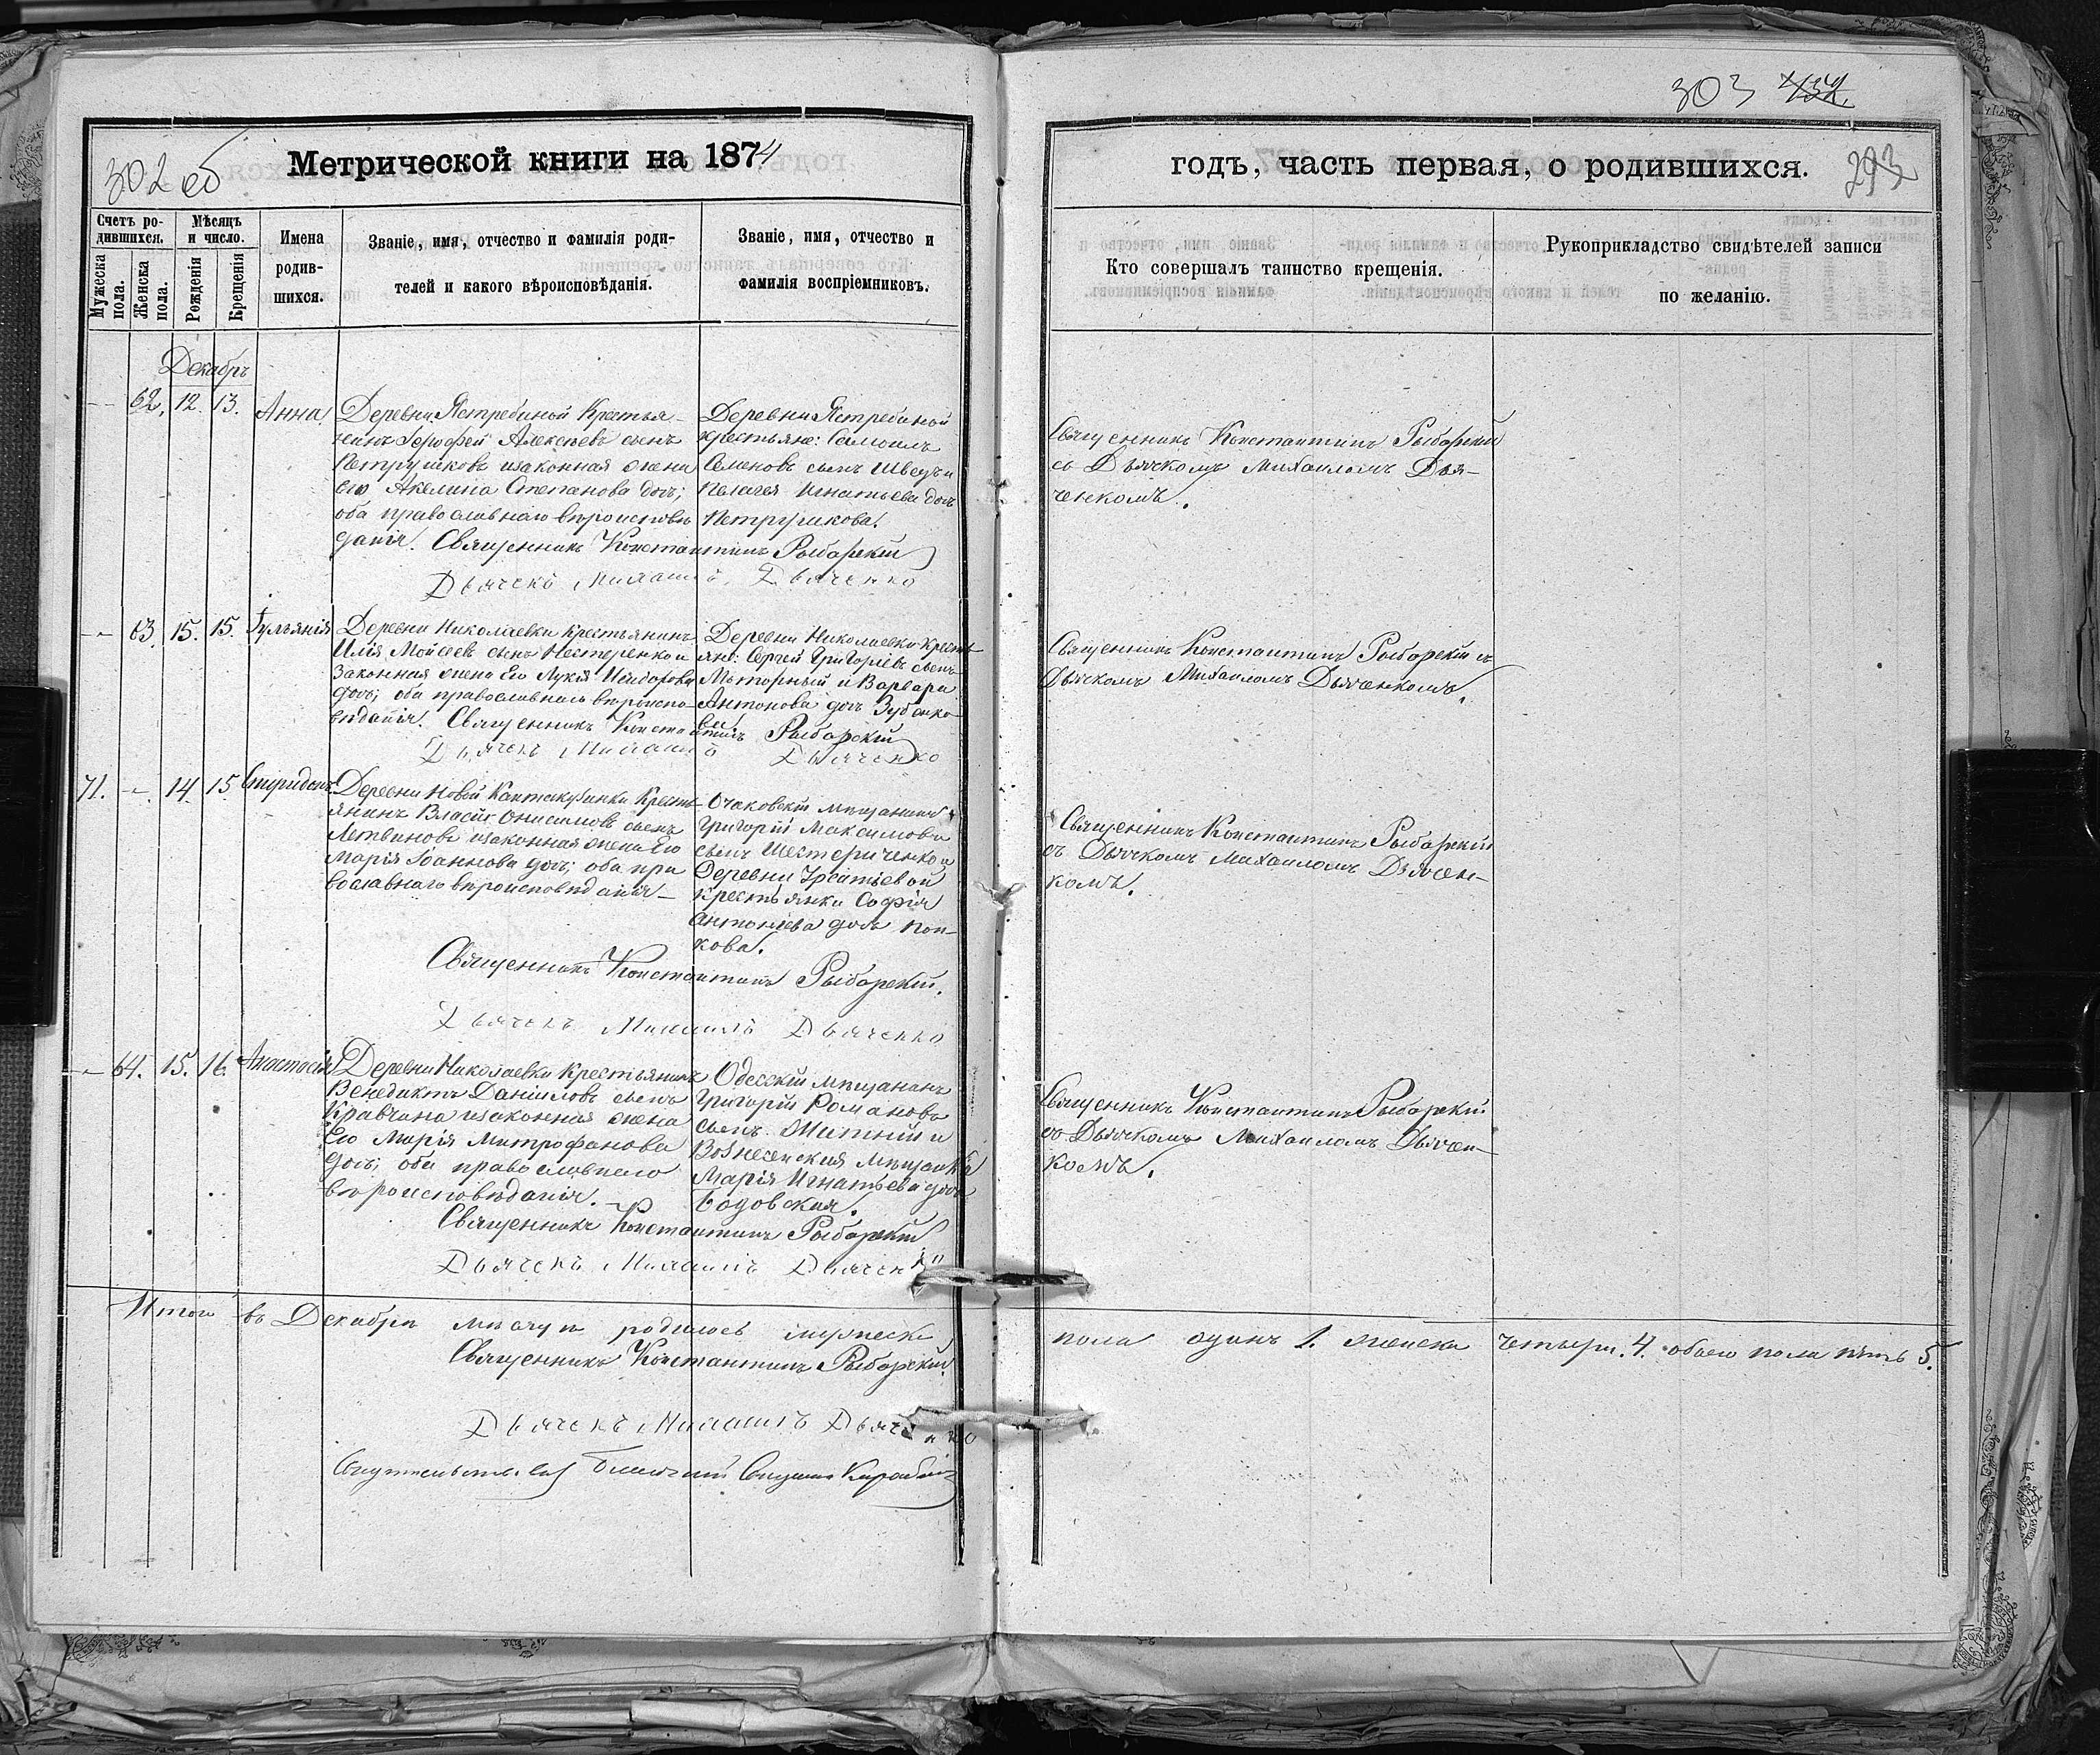 302 об
Метрической книги на 1874
Счетъ ро-
дившихся.
Мужеска пола.
Женска пола.
Мѣсяцъ
и число.
Рожденія
Крещенія
Имена
родив-
шихся.
Званіе, имя, отчество и фамилія роди-
телей и какого вѣроисповѣданія.
Званіе, имя, отчество и
фамилія воспріемниковъ.
Декабрь
62. 12. 13. Анна
Деревни Ястребиной Крестья-
нинъ Іерофей Алексѣевъ сынъ
Петрушковъ изаконная жена
его Акелина Степанова дочь;
оба православнаго вѣроисповѣ
данія. Священникъ Константинъ Рыбарскій
Деревни Ястребиной
крестьяне: Самоилъ
Семеновъ сынъ Шведъ и
Пелагея Игнатьева дочь
Петрушкова.
Дьячекъ Михаилъ Дьяченко
63. 15. 15. Іульянія
Деревни Николаевки крестьянинъ
Илія Моисеевъ сынъ Нестеренко и
Законная жена Его Лукія Исидорова
дочь; оба православнаго вѣроиспо-
вѣданія. Священникъ Константинъ Рыбарскій
Деревни Николаевки Кресть-
яне: Сергей Григорьевъ сынъ
и Варвара
Антонова дочь Зубенко-
ва.
Дьячекъ Михаилъ Дьяченко
71. 14. 15. Спиридонъ
Деревни Новой Кантакузинки Кресть-
янинъ Власій Онисимовъ сынъ
Летвиновъ изаконная жена Его
Марія Іоаннова дочь; оба пра
вославнаго вѣроисповѣданія
Очаковскій мѣщанинъ
Григорій Максимовъ
сынъ Шестериченко и
Деревни
крестьянка Софія
Антоніева дочь Поп-
кова.
Священникъ Константинъ Рыбарскій.
Дьячекъ Михаилъ Дьяченко
64. 15. 16. Анастасія
Деревни Николаевки крестьянинъ
Венедиктъ Даниловъ сынъ
Кравчина изаконная жена
Его Марія Митрофанова
дочь; оба православнаго
вѣроисповѣданія.
Одесскій мѣщанинъ
Григорій Романовъ
сынъ Житній и
Вознесенская мѣщанка
Марія Игнатьева дочь
Бодовская.
Священникъ Константинъ Рыбарскій
Дьячекъ Михаилъ Дьяченко
Итого въ Декабрѣ мѣсяцѣ родилось мужеска
Священникъ Константинъ Рыбарскій.
Дьячекъ Михаилъ Дьяченко
303
293
годъ, часть первая, о родившихся.
Кто совершалъ таинство крещенія.
Рукоприкладство свидѣтелей записи
по желанію.
Священникъ Константинъ Рыбарскій
съ Дьячкомъ Михаиломъ Дья-
ченкомъ.
Священникъ Константинъ Рыбарскій съ
Дьячкомъ Михаиломъ Дьяченкомъ.
Священникъ Константинъ Рыбарскій
съ Дьячкомъ Михаиломъ Дьячен-
комъ.
Священникъ Константинъ Рыбарскій
съ Дьячкомъ Михаиломъ Дьячен-
комъ.
пола одинъ 1. женска четыре. 4. обоего пола пять 5.